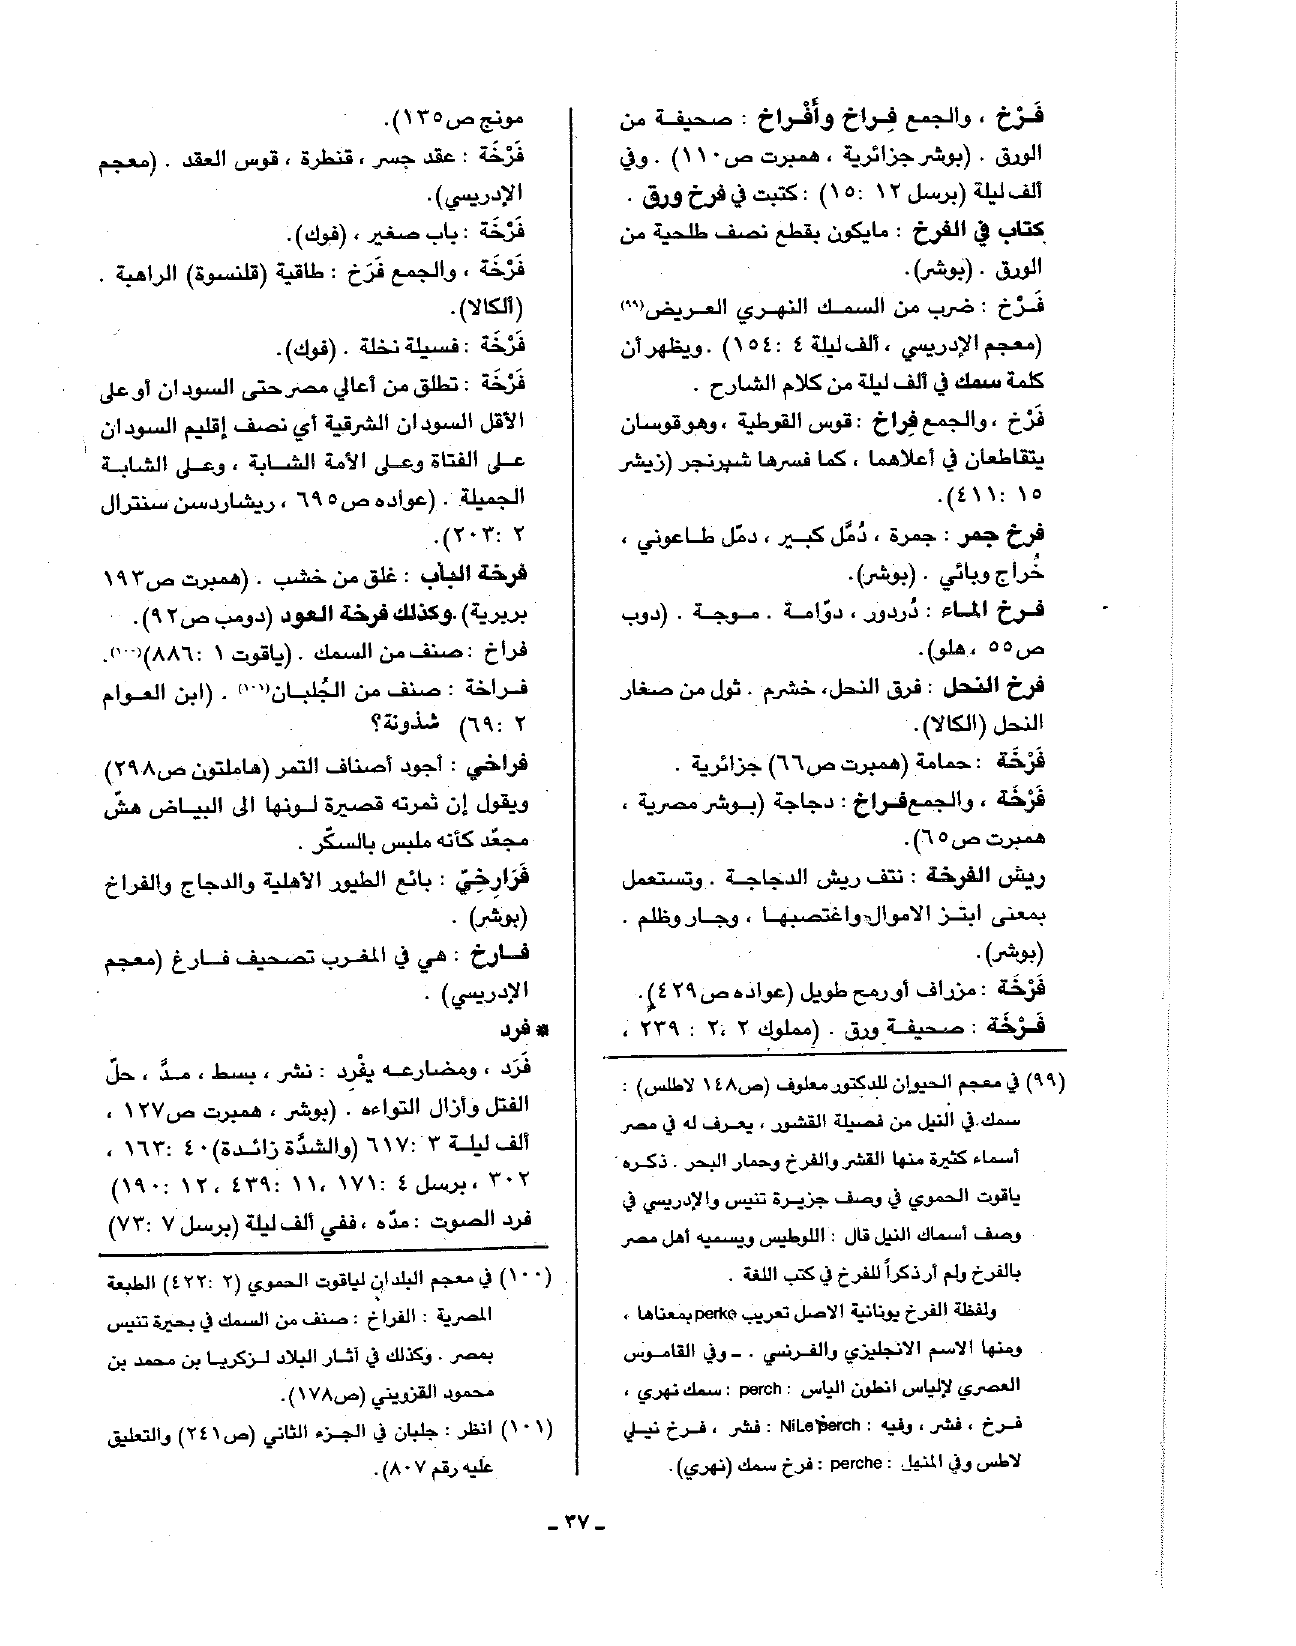 فَرْخ ، والجمع فِراخ وأَفْراخ : صحيفة من
الورق . (بوشر جزائرية ، همبرت ص١١٠) . وفي
ألف ليلة (برسل ١٢ :١٥) : كتبت في فرخ ورق .
كتاب في الفرخ : مايكون بقطع نصف طلحية من
الورق . (بوشر).
فَرْخ : ضرب من السمك النهري العريض(٩٩)
(معجم الإدريسي ، ألف ليلة ٤ :١٥٤) . ويظهر أن
كلمة سمك في ألف ليلة من كلام الشارح .
فَرْخ ، والجمع فِراخ : قوس القوطية ، وهو قوسان
يتقاطعان في أعلاهما ، كما فسرها شپرنجر (زيشر
١٥ :٤١١).
فرخ جمر : جمرة ، دُمَّل كبير ، دمّل طاعوني ،
خُراج وبائي . (بوشر).
فرخ الماء : دُردور ، دوّامة . موجة . (دوب
ص٥٥ ، هلو).
فرخ النحل : فرق النحل، خشرم . ثول من صغار
النحل (الكالا).
فَرْخَة : حمامة (همبرت ص٦٦) جزائرية .
فَرْخَة ، والجمع فراخ : دجاجة (بوشر مصرية ،
همبرت ص٦٥).
ريش الفرخة : نتف ريش الدجاجة . وتستعمل
بمعنى ابتز الاموال واغتصبها ، وجار وظلم .
(بوشر).
فَرْخَة : مزراف أو رمح طويل (عواده ص٤٢٩).
فَرْخَة : صحيفة ورق . (مملوك ٢ ،٢ : ٢٣٩ ،
(٩٩) في معجم الحيوان للدكتور معلوف (ص١٤٨ لاطلس) :
سمك في النيل من فصيلة القشور ، يعرف له في مصر
أسماء كثيرة منها القشر والفرخ وحمار البحر . ذكره
ياقوت الحموي في وصف جزيرة تنيس والإدريسي في
وصف أسماك النيل قال : اللوطيس ويسميه أهل مصر
بالفرخ ولم أر ذكراً للفرخ في كتب اللغة .
ولفظة الفرخ يونانية الاصل تعريب perke بمعناها ،
ومنها الاسم الانجليزي والفرنسي . ـ وفي القاموس
العصري لإلياس انطون الياس : perch : سمك نهري ،
فرخ ، قشر ، وفيه : NiLe perch : قشر ، فرخ نيلي
لاطس وفي المنهل : perche : فرخ سمك (نهري).
مونج ص١٣٥).
فَرْخَة : عقد جسر ، قنطرة ، قوس العقد . (معجم
الإدريسي).
فَرْخَة : باب صغير ، (فوك).
فَرْخَة ، والجمع فَرَخ : طاقية (قلنسوة) الراهبة .
(ألكالا).
فَرْخَة : فسيلة نخلة . (فوك).
فَرْخَة : تطلق من أعالي مصر حتى السودان أو على
الأقل السودان الشرقية أي نصف إقليم السودان
على الفتاة وعلى الأمة الشابة ، وعلى الشابة
الجميلة . (عواده ص٦٩٥ ، ريشاردسن سنترال
٢ :٢٠٣).
فرخة الباب : غلق من خشب . (همبرت ص١٩٣
بربرية). وكذلك فرخة العود (دومب ص٩٢).
فراخ : صنف من السمك . (ياقوت ١ :٨٨٦)(١٠٠).
فراخة : صنف من الجُلبان(١٠١) . (ابن العوام
٢ :٦٩) شذونة؟
فراخي : أجود أصناف التمر (هاملتون ص٢٩٨)
ويقول إن ثمرته قصيرة لونها الى البياض هشّ
مجعّد كأنه ملبس بالسكّر .
فَرَارِخِيّ : بائع الطيور الأهلية والدجاج والفراخ
(بوشر) .
فارخ : هي في المغرب تصحيف فارغ (معجم
الإدريسي) .
* فرد
فَرَد ، ومضارعه يفْرِد : نشر ، بسط ، مدَّ ، حلّ
الفتل وأزال التواءه . (بوشر ، همبرت ص١٢٧ ،
ألف ليلة ٣ :٦١٧ (والشدّة زائدة)، ٤ :١٦٣ ،
٣٠٢ ، برسل ٤ :١٧١ ،١١ :٤٣٩ ، ١٢ :١٩٠)
فرد الصوت : مدّه ، ففي ألف ليلة (برسل ٧ :٧٣)
(١٠٠) في معجم البلدان لياقوت الحموي (٢ :٤٢٢) الطبعة
المصرية : الفراخ : صنف من السمك في بحيرة تنيس
بمصر . وكذلك في آثار البلاد لزكريا بن محمد بن
محمود القزويني (ص١٧٨).
(١٠١) انظر : جلبان في الجزء الثاني (ص٢٤١) والتعليق
عليه رقم ٨٠٧).
ـ ٣٧ ـ